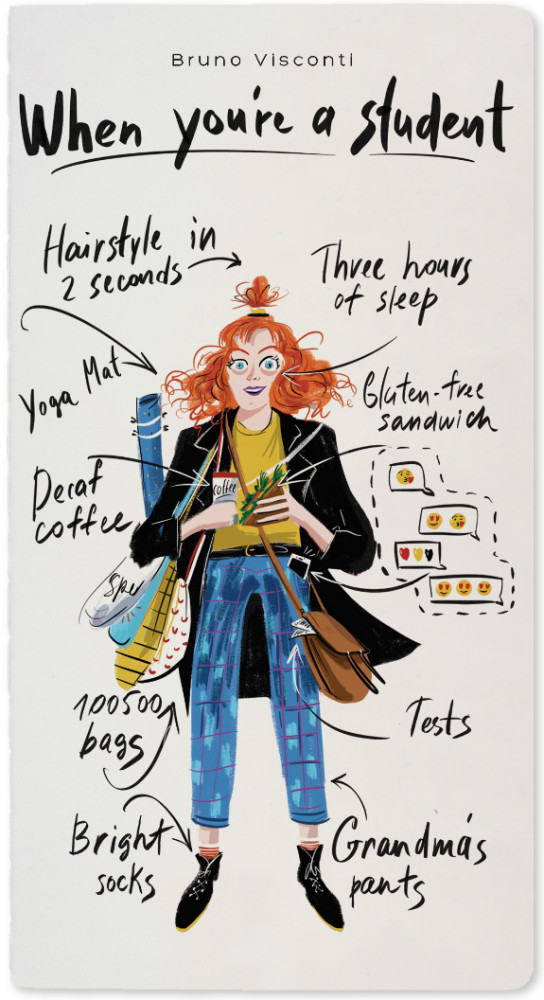 Bruno Visconti
When you're a student
Hairstyle in
2 seconds
Three hours
of sleep
Yoga Mat
Gluten-free
sandwich
Decaf
coffee
coffee
100500
bags
Tests
Bright
socks
Grandma's
pants